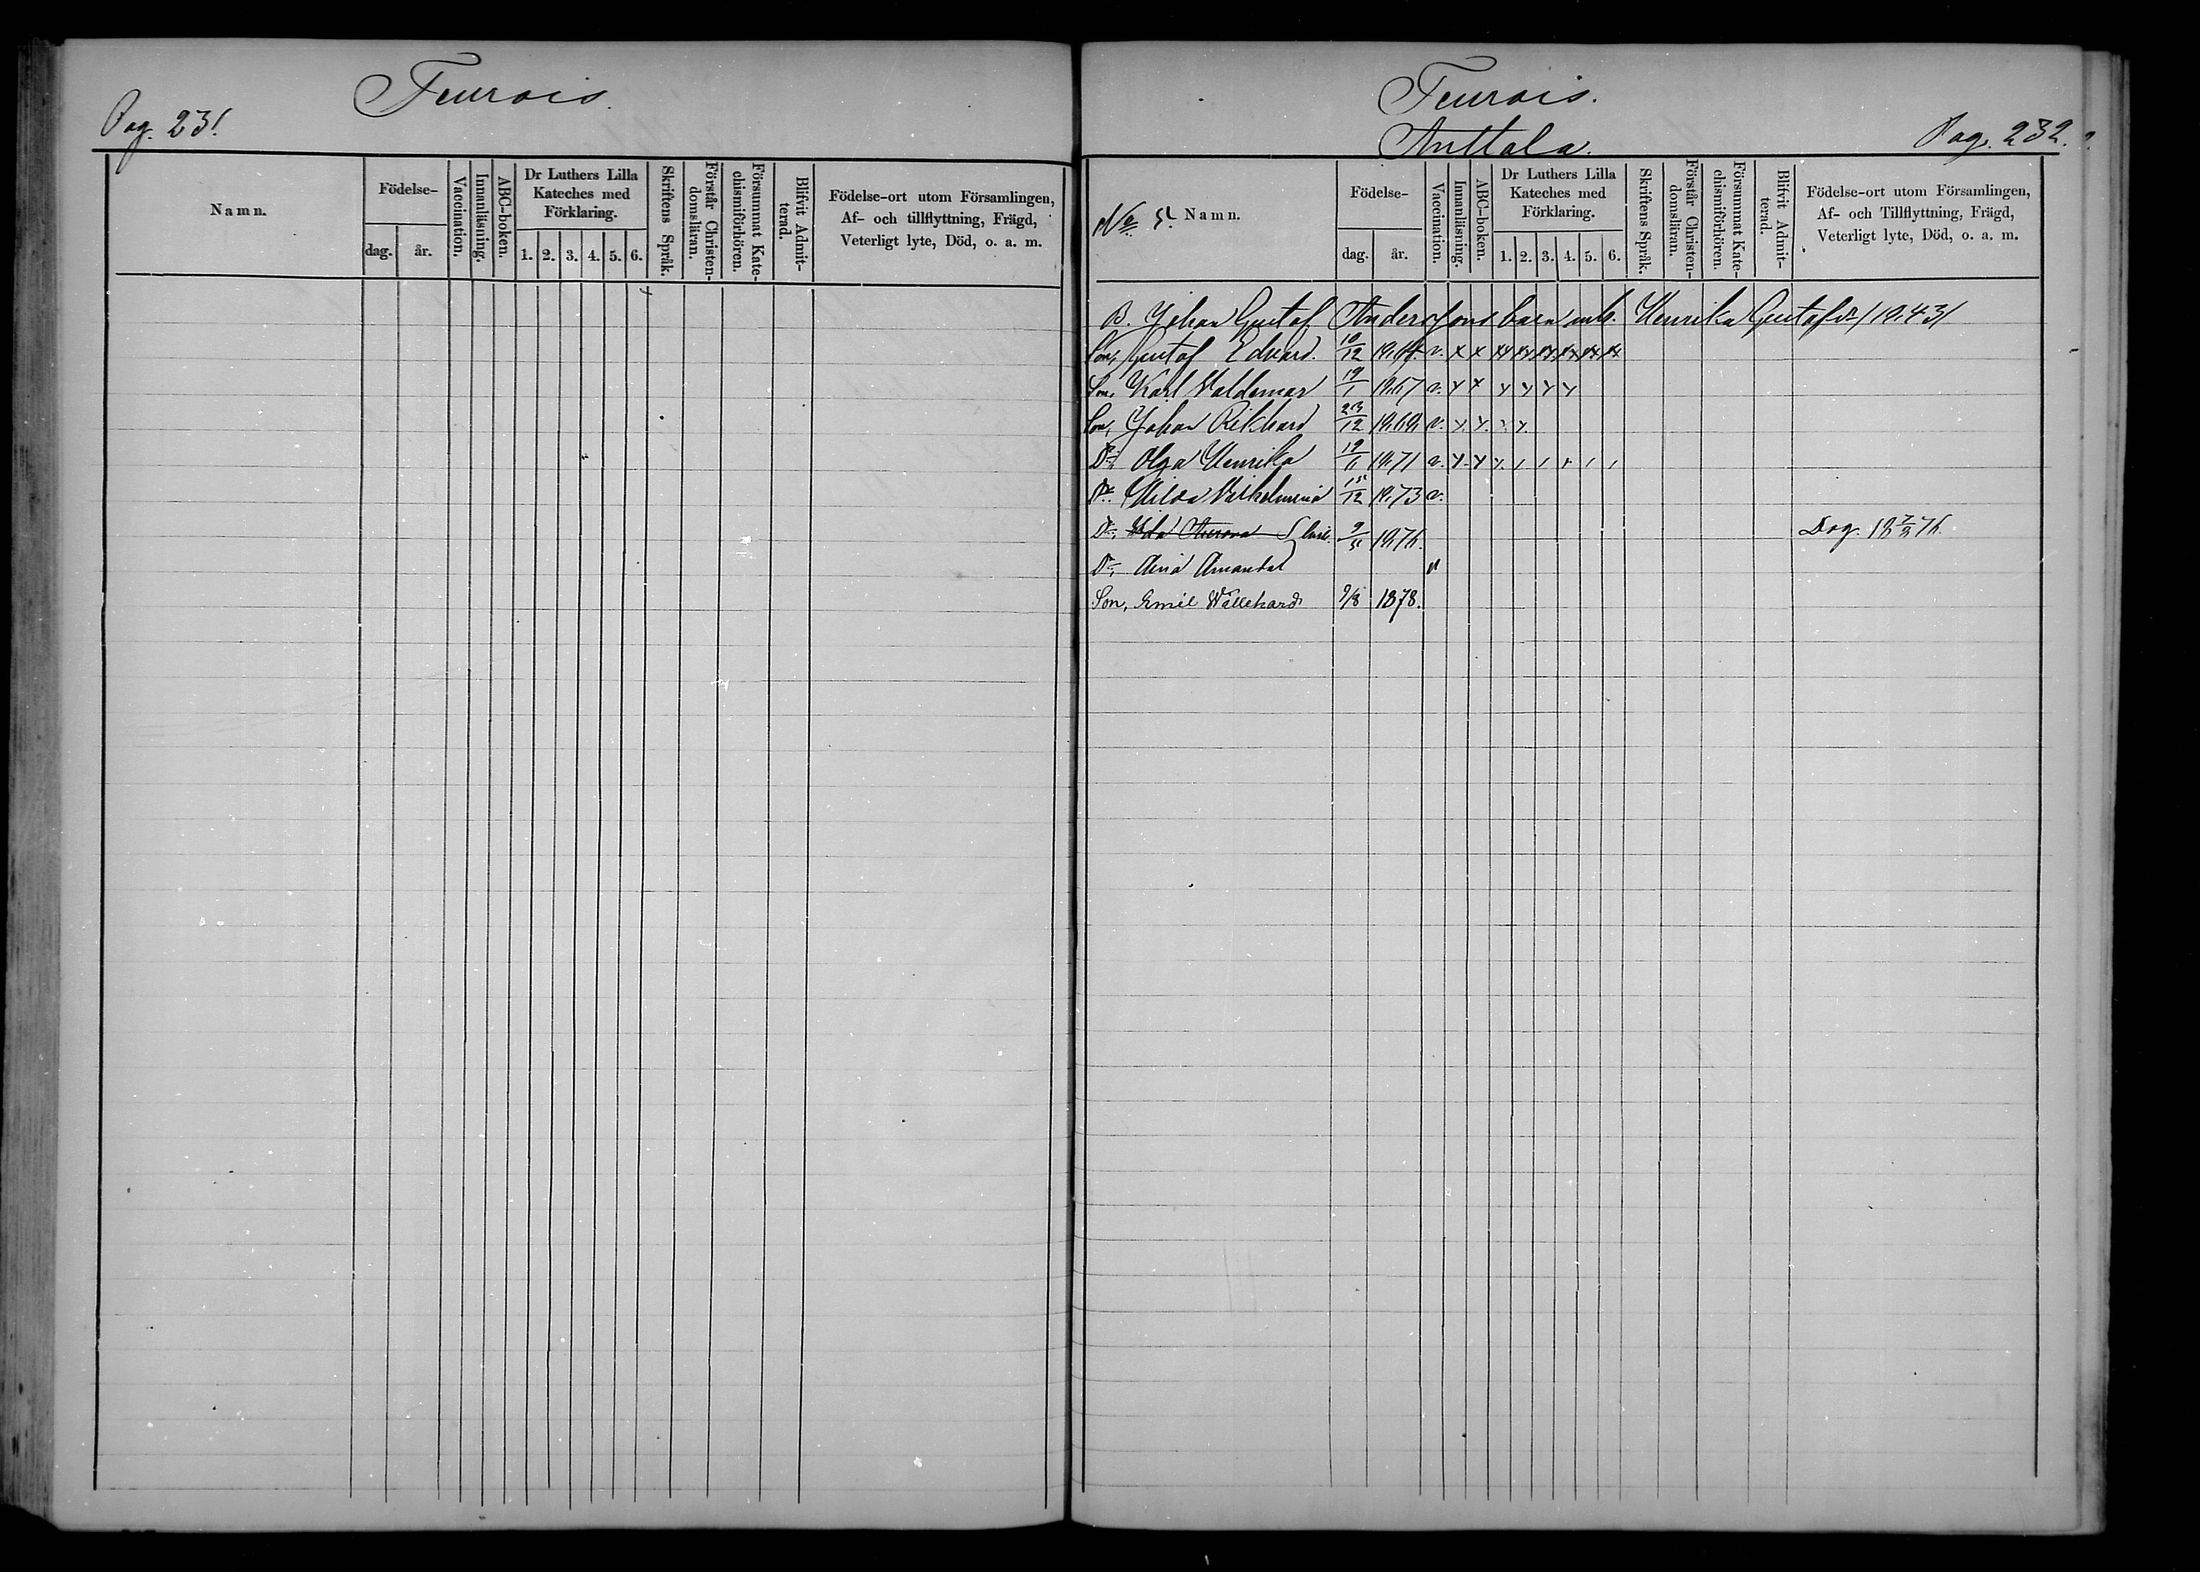 Teurois.
Pag. 231.
Namn.
Födelse-
dag.
år.
Vaccination.
Innanläsning.
ABC-boken.
Dr Luthers Lilla
Kateches med
Förklaring.
1. 2. 3. 4. 5. 6.
Skriftens Språk.
Förstår Christen-
domsläran.
Försummat Kate-
chismiförhören.
Blifvit Admit-
terad.
Födelse-ort utom Församlingen,
Af- och tillflyttning, Frägd,
Veterligt lyte, Död, o. a. m.
Teurois.
Anttala.
Pag. 232.
Namn.
Födelse-
dag.
år.
Vaccination.
Innanläsning.
ABC-boken.
Dr Luthers Lilla
Kateches med
Förklaring.
1. 2. 3. 4. 5. 6.
Skriftens Språk.
Förstår Christen-
domsläran.
Försummat Kate-
chismiförhören.
Blifvit Admit-
terad.
Födelse-ort utom Församlingen,
Af- och Tillflyttning, Frägd,
Veterligt lyte, Död, o. a. m.
B. Johan Gustaf Anderssons barn m. Henrika Gustafsdr
Son, Gustaf Edvard. 10/12 v. x x
Son, Karl Valdemar 19/1 1867 v.
Son, Johan Rikhard 23/12 1869 v.
Dr. Olga Henrika 1871 v.
Dr. Hilda Vilhelmina 15/12 1873 v.
Dr. Ida Aurora 1876. Dog. 18 7/9 76.
Dr, Aina Amanda v
Son, Emil Wallehard 9/8 1878.